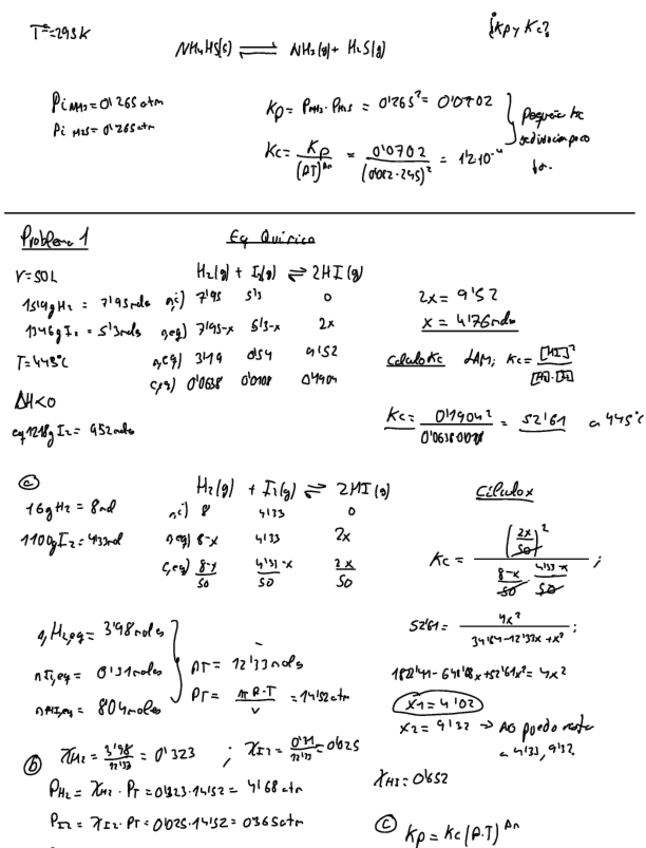 Tª=293K
¿Kp y Kc?
NH4HS(s) ⇌ NH3(g) + H2S(g)
Pi NH3 = 0'265 atm
Pi H2S = 0'265 atm
Kp = PNH3 · PH2S = 0'265² = 0'0702
Kc = Kp/(RT)^Δn = 0'0702/(0'082·295)² = 1'2·10⁻⁴
Problema 1
Eq Químico
V=50L
H2(g) + I2(g) ⇌ 2HI(g)
15'9g H2 = 7'95 mols ni) 7'95 5'3 0
1346g I2 = 5'3 mols neq) 7'95-x 5'3-x 2x
T=445°C neq) 3'19 0'54 9'52
ceq) 0'0638 0'0108 0'1904
ΔH<0
2x = 9'52
x = 4'76 mols
Calculo Kc LAM; Kc = [HI]²/[H2]·[I2]
Kc = 0'1904²/0'0638·0'0108 = 52'61 a 445°C
a
16g H2 = 8mol
1100g I2 = 4'33mol
H2(g) + I2(g) ⇌ 2HI(g)
ni) 8 4'33 0
neq) 8-x 4'33 2x
ceq) 8-x/50 4'33-x/50 2x/50
Cálculo x
Kc = (2x/50)²/(8-x/50 · 4'33-x/50);
52'61 = 4x²/(34'64-12'33x+x²);
1822'41-648'68x+52'61x² = 4x²
x1 = 4'02
x2 = 9'32 → No puedo restar
a 4'33, 9'32
n H2,eq = 3'98 moles
n I2,eq = 0'31 moles
n HI,eq = 8'04 moles
nT = 12'33 mols
PT = nRT/V = 14'52 atm
b
χH2 = 3'98/12'33 = 0'323 ; χI2 = 0'31/12'33 = 0'025
χHI = 0'652
PH2 = χH2 · PT = 0'323·14'52 = 4'68 atm
PI2 = χI2 · PT = 0'025·14'52 = 0'365 atm
c
Kp = Kc(R·T)^Δn